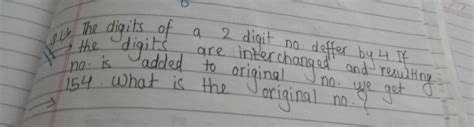 The digits of a 2 digit no. deffer by 4. If
the digits are interchanged and resulting
no. is added to original no. we get
154. What is the original no.?